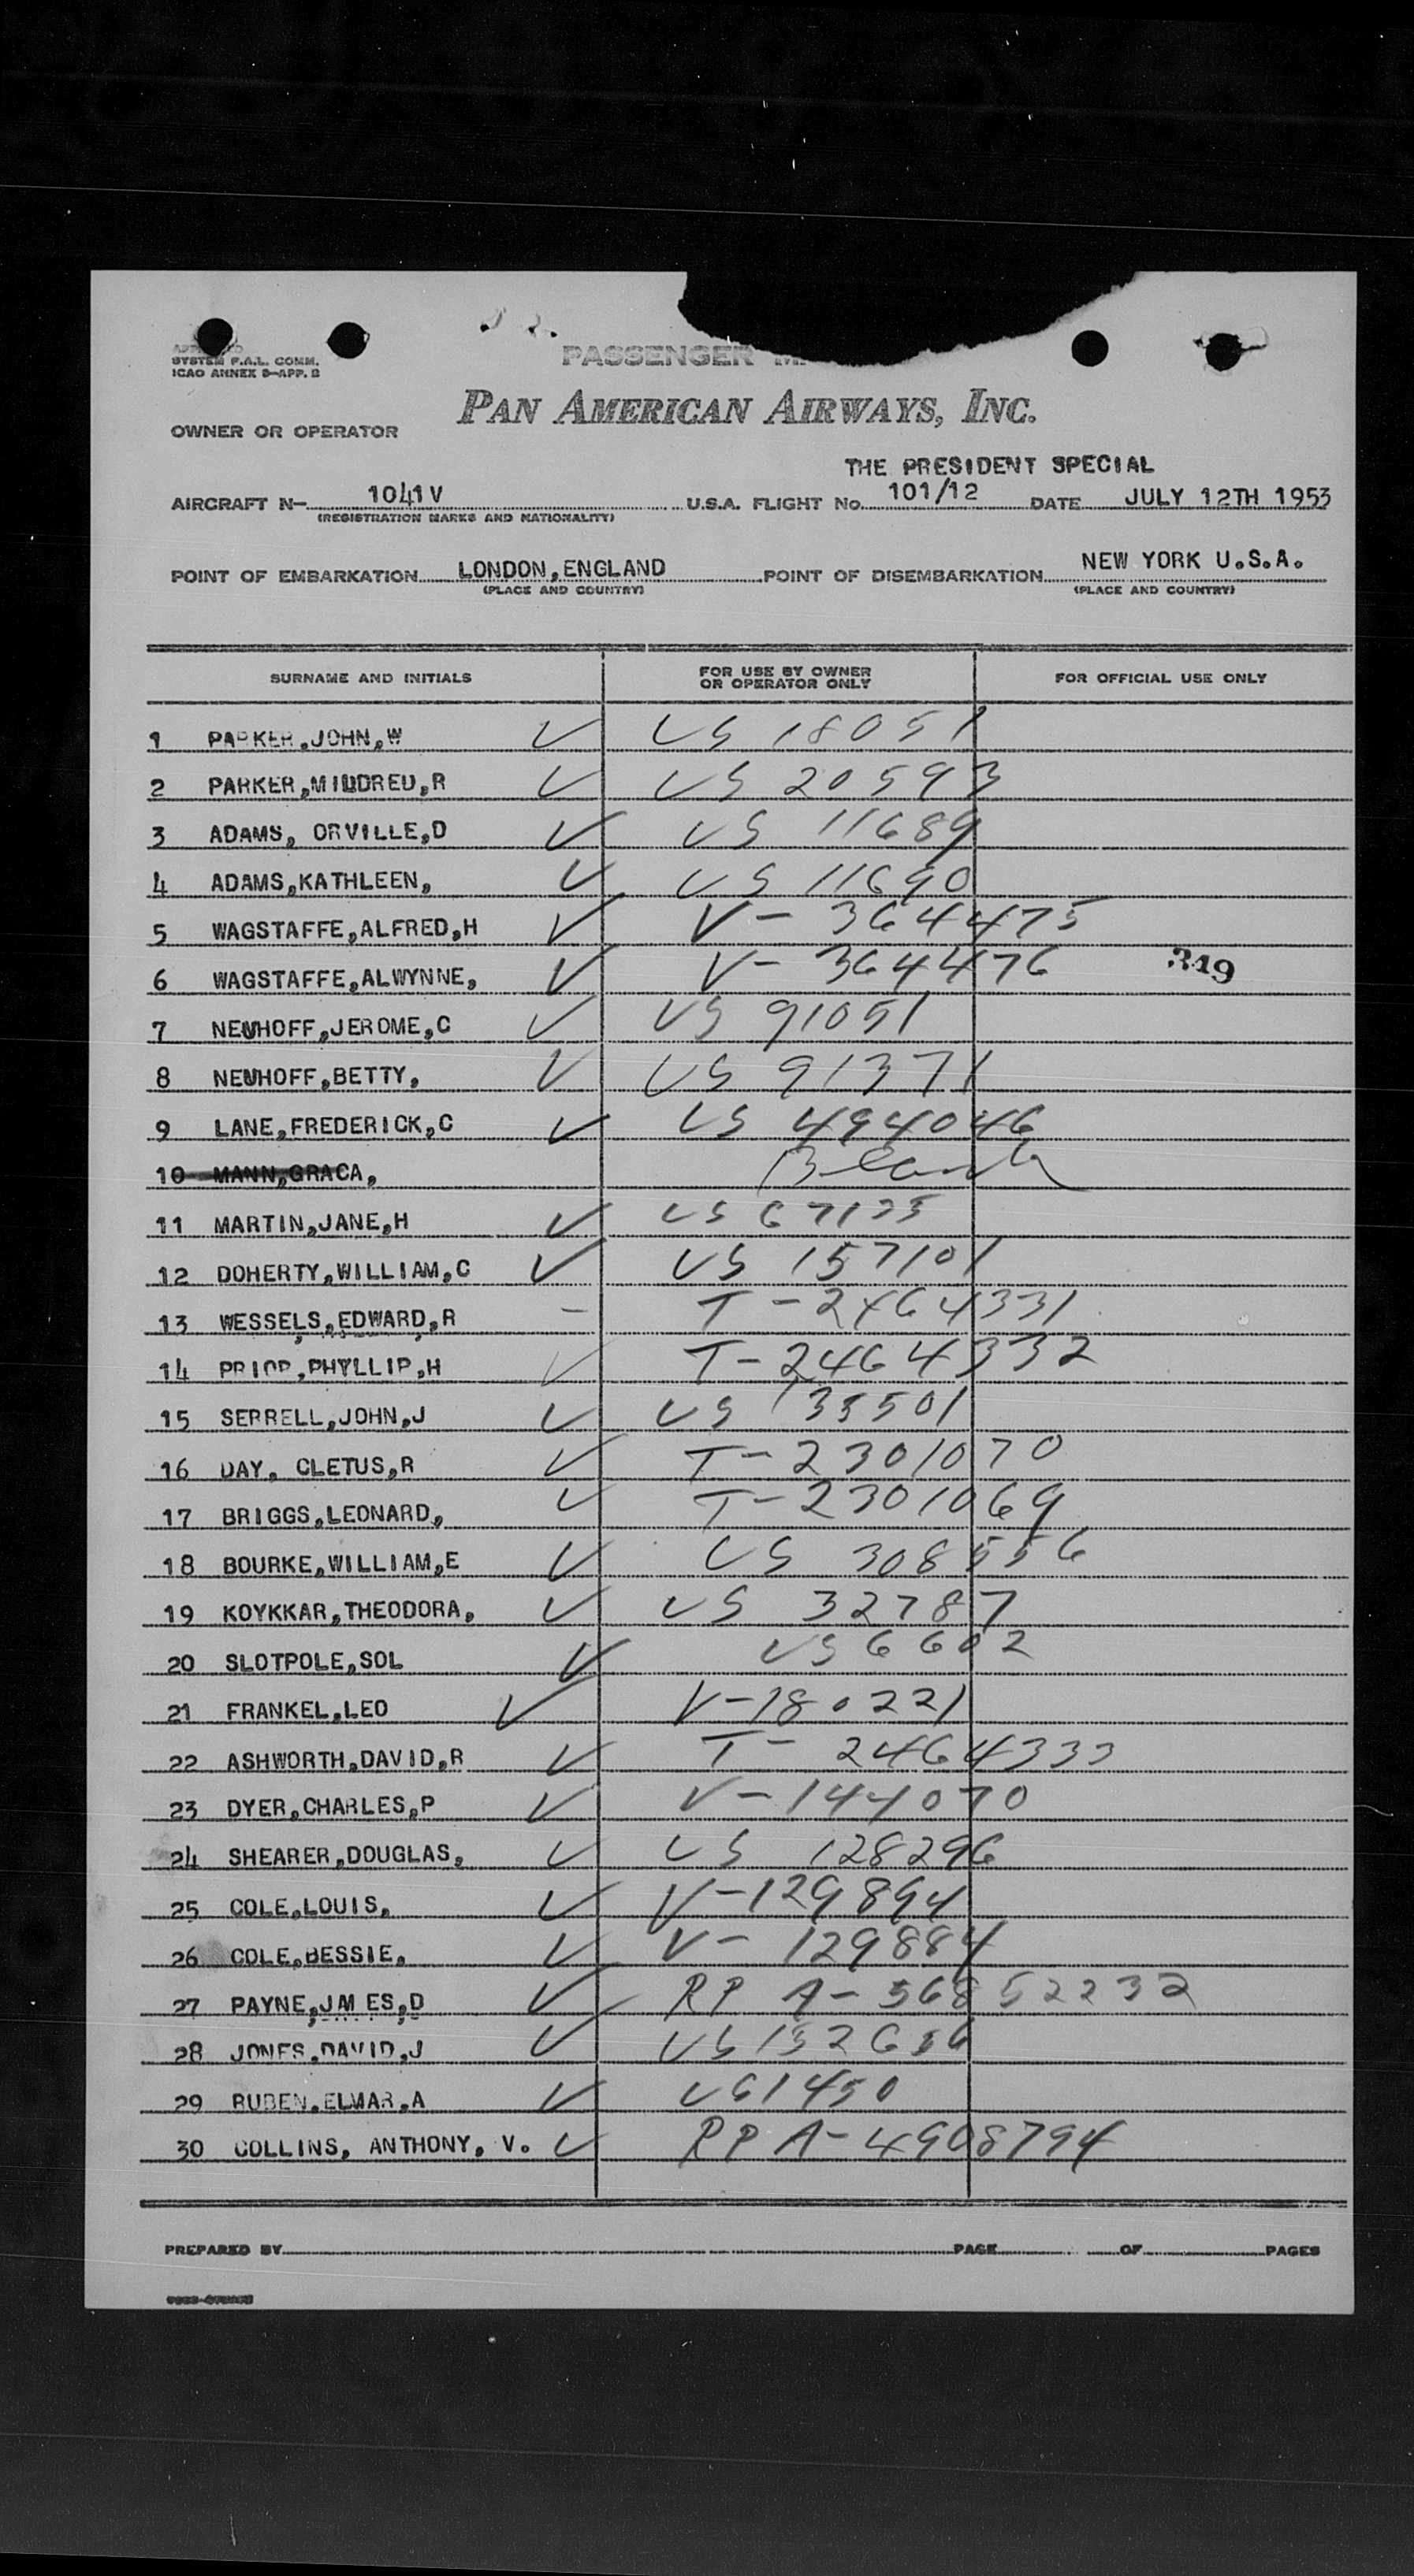 SYSTEM F.A.L. COMM.
ICAO ANNEX 9-APP. B
PASSENGER
PAN AMERICAN AIRWAYS, INC.
OWNER OR OPERATOR
THE PRESIDENT SPECIAL
AIRCRAFT N- 1041V U.S.A. FLIGHT No. 101/12 DATE JULY 12TH 1953
(REGISTRATION MARKS AND NATIONALITY)
POINT OF EMBARKATION LONDON,ENGLAND POINT OF DISEMBARKATION NEW YORK U.S.A.
(PLACE AND COUNTRY) (PLACE AND COUNTRY)
SURNAME AND INITIALS FOR USE BY OWNER OR OPERATOR ONLY FOR OFFICIAL USE ONLY
1 PARKER,JOHN,W ✓ US 18051
2 PARKER,MILDRED,R ✓ US 20593
3 ADAMS, ORVILLE,D ✓ US 11689
4 ADAMS,KATHLEEN, ✓ US 11690
5 WAGSTAFFE,ALFRED,H ✓ V- 364475
6 WAGSTAFFE,ALWYNNE, ✓ V- 364476 349
7 NEUHOFF,JEROME,C ✓ US 91051
8 NEUHOFF,BETTY, ✓ US 91371
9 LANE,FREDERICK,C ✓ US 494046
10 MANN,GRACA, Blank
11 MARTIN,JANE,H ✓ US 67135
12 DOHERTY,WILLIAM,C ✓ US 157101
13 WESSELS,EDWARD,R - T-2464331
14 PRIOR,PHYLLIP,H ✓ T-2464332
15 SERRELL,JOHN,J ✓ US 135501
16 DAY, CLETUS,R ✓ T-2301070
17 BRIGGS,LEONARD, ✓ T-2301069
18 BOURKE,WILLIAM,E ✓ US 308556
19 KOYKKAR,THEODORA, ✓ US 32787
20 SLOTPOLE,SOL ✓ US 6602
21 FRANKEL,LEO ✓ V-180221
22 ASHWORTH,DAVID,R ✓ T- 2464333
23 DYER,CHARLES,P ✓ V-144070
24 SHEARER,DOUGLAS, ✓ US 128296
25 COLE,LOUIS, ✓ V-129894
26 COLE,BESSIE, ✓ V- 129884
27 PAYNE,JM ES,D ✓ RP A- 56852232
28 JONES,DAVID,J ✓ US
29 RUBEN,ELMAR,A ✓ US 1450
30 COLLINS, ANTHONY, V. ✓ RP A-4908794
PREPARED BY PAGE OF PAGES